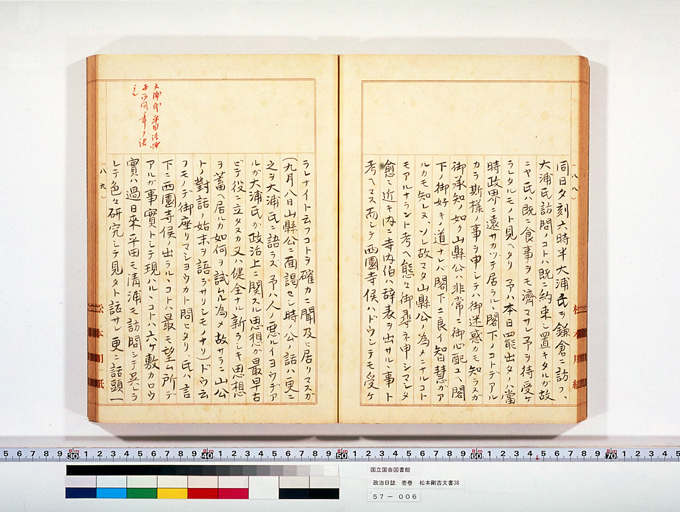 (八八)
同日夕刻六時半大浦氏ヲ鎌倉ニ訪フ、
大浦氏訪問ノコトハ既ニ約束シ置キタルガ故
ニヤ氏ハ既ニ食事ヲモ濟マサレ予ヲ待受ケ
ラレタルモノト見ヘタリ 予ハ本日罷出タノハ當
時政界ニ遠サカッテ居ラルヽ閣下ノコトデアル
カラ斯様ノ事ヲ申シテハ御迷惑カモ知ラヌガ
御承知ノ如ク山縣公ハ非常ニ御心配ユヘ閣
下ノ御好キノ道ナレバ閣下ニ良イ智慧ガア
ルカモ知ラヌ、ソレ故マタ山縣公ノ為メニナルコト
モアルナラント考ヘ態々御尋ネ申シマシタ
愈々近キ内ニ寺内伯ハ辞表ヲ出サルヽ事ト
考ヘマス而シテ西園寺侯ハドウシテモ受ケ
(八九)
ラレナイト云フコトヲ確カニ聞及ンデ居リマスガ
(九月八日山縣公ニ面謁セシ時ノ公ノ話ハ更ニ
之ヲ大浦氏ニ語ラズ 予ハ人ノ悪ルイヨウデア
ルガ大浦氏ガ政治上ニ関スル思想ガ最早古
ビテ役ニ立タヌカ又ハ健全ナル新ラシキ思想
ヲ蓄ヘ居ルカ如何ヲ試ムル為メ故サラニ山公
トノ對話ノ始末ヲ語ラサリシモノナリ)ドウ云
フモノデ御座リマショウカト問ヒタリ、氏ハ言
下ニ西園寺侯ノ出ラルヽコトハ最モ望ム所デ
アルガ事實トシテ現ハルヽコトハ六ケ敷カロウ
實ハ過日來平田モ清浦モ訪問シテ呉レラ
レテ色々研究シテ見タト話サレ更ニ話頭一
大浦氏
国立国会図書館
政治日誌 壱巻 松本剛吉文書38
57－006